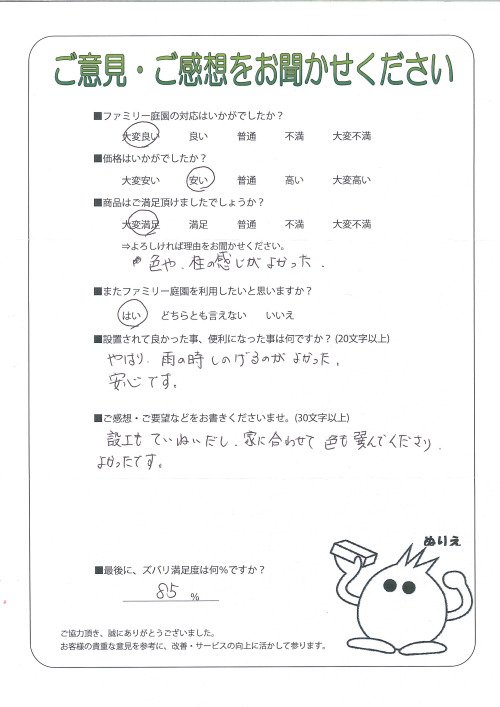 ご意見・ご感想をお聞かせください
■ファミリー庭園の対応はいかがでしたか？
大変良い 良い 普通 不満 大変不満
■価格はいかがでしたか？
大変安い 安い 普通 高い 大変高い
■商品はご満足頂けましたでしょうか？
大変満足 満足 普通 不満 大変不満
⇒よろしければ理由をお聞かせください。
色や、柱の感じがよかった．
■またファミリー庭園を利用したいと思いますか？
はい どちらとも言えない いいえ
■設置されて良かった事、便利になった事は何ですか？(20文字以上)
やはり、雨の時しのげるのがよかった。
安心です。
■ご感想・ご要望などをお書きくださいませ。(30文字以上)
設工もていねいだし、家に合わせて色も選んでくださり、
よかったです。
ぬりえ
■最後に、ズバリ満足度は何％ですか？
85 %
ご協力頂き、誠にありがとうございました。
お客様の貴重な意見を参考に、改善・サービスの向上に活かして参ります。